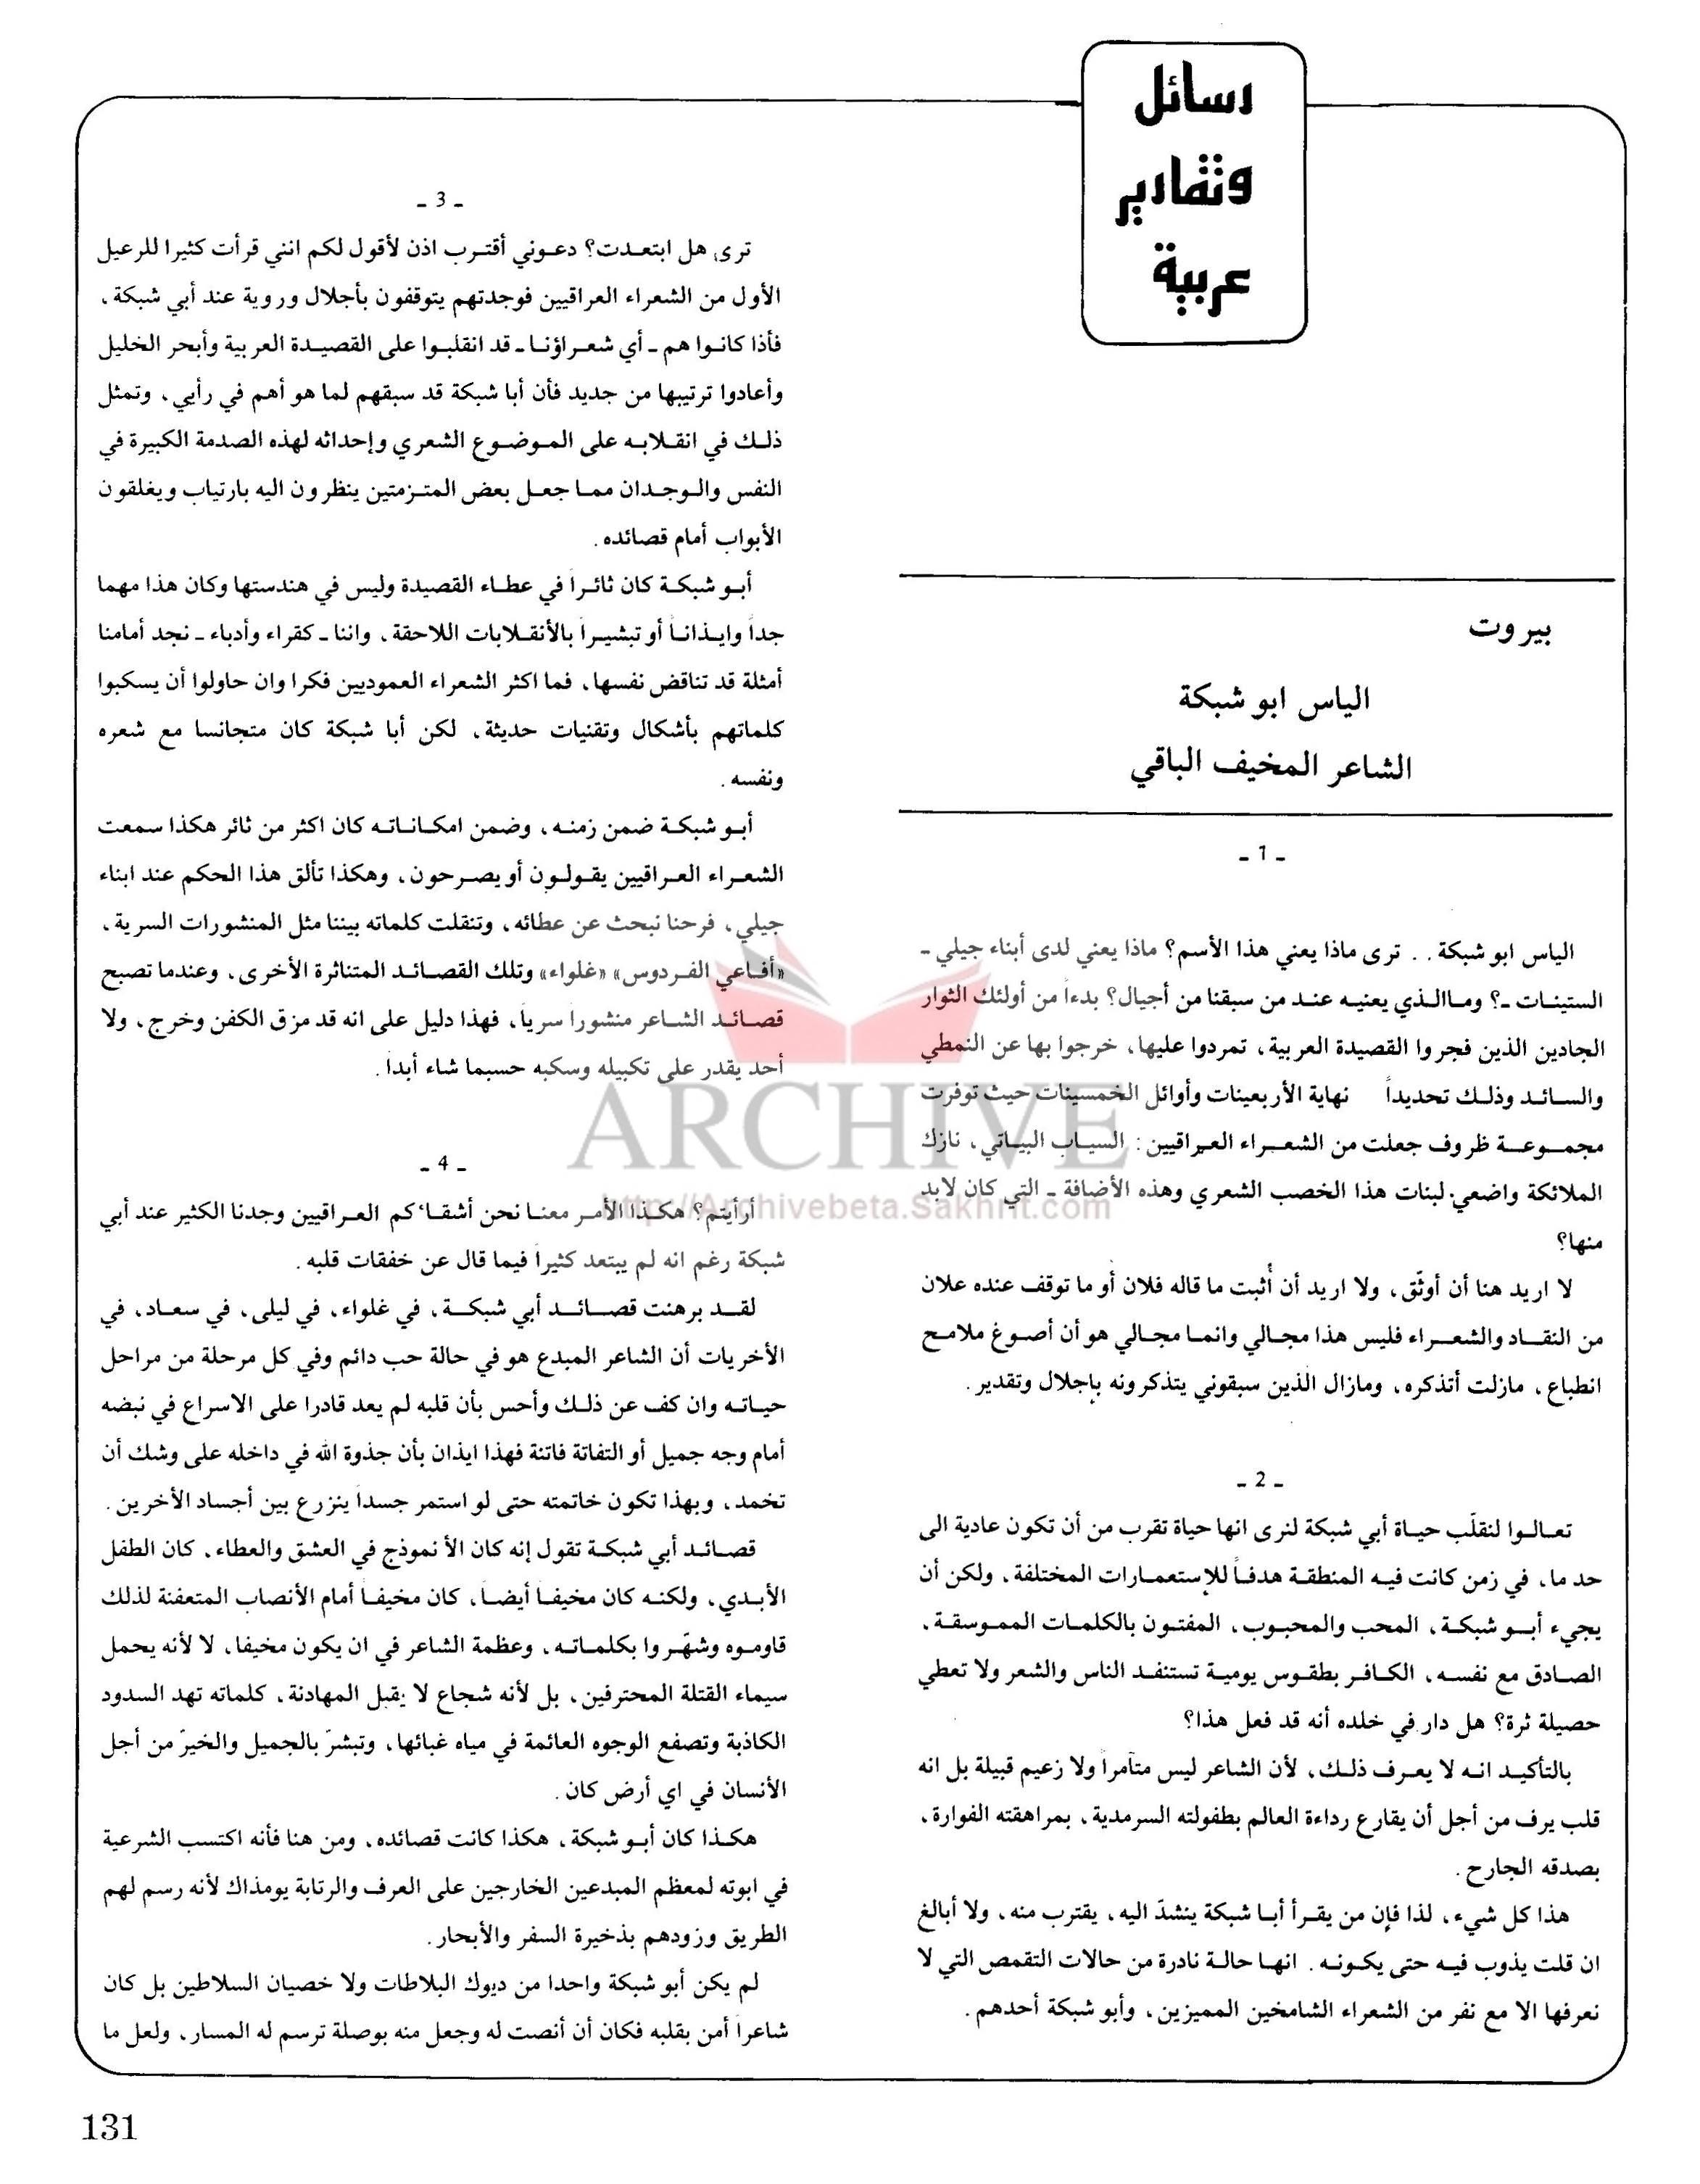 رسائل
وتقارير
عربية
بيروت
الياس ابو شبكة
الشاعر المخيف الباقي
- 1 -
الياس ابو شبكة . . ترى ماذا يعني هذا الأسم؟ ماذا يعني لدى أبناء جيلي ـ
الستينات ـ؟ وماالذي يعنيه عند من سبقنا من أجيال؟ بدءاً من أولئك الثوار
الجادين الذين فجروا القصيدة العربية، تمردوا عليها، خرجوا بها عن النمطي
والسائد وذلك تحديداً نهاية الأربعينات وأوائل الخمسينات حيث توفرت
مجموعة ظروف جعلت من الشعراء العراقيين: السياب البياتي، نازك
الملائكة واضعي لبنات هذا الخصب الشعري وهذه الأضافة ـ التي كان لابد
منها؟
لا اريد هنا أن أوثّق، ولا اريد أن أُثبت ما قاله فلان أو ما توقف عنده علان
من النقاد والشعراء فليس هذا مجالي وانما مجالي هو أن أصوغ ملامح
انطباع، مازلت أتذكره، ومازال الذين سبقوني يتذكرونه بإجلال وتقدير.
- 2 -
تعالوا لنقلّب حياة أبي شبكة لنرى انها حياة تقرب من أن تكون عادية الى
حد ما، في زمن كانت فيه المنطقة هدفاً للإستعمارات المختلفة، ولكن أن
يجيء أبو شبكة، المحب والمحبوب، المفتون بالكلمات المموسقة،
الصادق مع نفسه، الكافر بطقوس يومية تستنفد الناس والشعر ولا تعطي
حصيلة ثرة؟ هل دار في خلده أنه قد فعل هذا؟
بالتأكيد انه لا يعرف ذلك، لأن الشاعر ليس متآمراً ولا زعيم قبيلة بل انه
قلب يرف من أجل أن يقارع رداءة العالم بطفولته السرمدية، بمراهقته الفوارة،
بصدقه الجارح.
هذا كل شيء، لذا فإن من يقرأ أبا شبكة ينشدّ اليه، يقترب منه، ولا أبالغ
ان قلت يذوب فيه حتى يكونه. انها حالة نادرة من حالات التقمص التي لا
نعرفها الا مع نفر من الشعراء الشامخين المميزين، وأبو شبكة أحدهم.
- 3 -
ترى هل ابتعدت؟ دعوني أقترب اذن لأقول لكم انني قرأت كثيرا للرعيل
الأول من الشعراء العراقيين فوجدتهم يتوقفون بأجلال وروية عند أبي شبكة،
فأذا كانوا هم ـ أي شعراؤنا ـ قد انقلبوا على القصيدة العربية وأبحر الخليل
وأعادوا ترتيبها من جديد فأن أبا شبكة قد سبقهم لما هو أهم في رأيي، وتمثل
ذلك في انقلابه على الموضوع الشعري وإحداثه لهذه الصدمة الكبيرة في
النفس والوجدان مما جعل بعض المتزمتين ينظرون اليه بارتياب ويغلقون
الأبواب أمام قصائده.
أبو شبكة كان ثائراً في عطاء القصيدة وليس في هندستها وكان هذا مهما
جداً وايذاناً أو تبشيراً بالأنقلابات اللاحقة، واننا ـ كقراء وأدباء ـ نجد أمامنا
أمثلة قد تناقض نفسها، فما اكثر الشعراء العموديين فكرا وان حاولوا أن يسكبوا
كلماتهم بأشكال وتقنيات حديثة، لكن أبا شبكة كان متجانسا مع شعره
ونفسه.
أبو شبكة ضمن زمنه، وضمن امكاناته كان اكثر من ثائر هكذا سمعت
الشعراء العراقيين يقولون أو يصرحون، وهكذا تألق هذا الحكم عند ابناء
جيلي، فرحنا نبحث عن عطائه، وتنقلت كلماته بيننا مثل المنشورات السرية،
«أفاعي الفردوس» «غلواء» وتلك القصائد المتناثرة الأخرى، وعندما تصبح
قصائد الشاعر منشوراً سرياً، فهذا دليل على انه قد مزق الكفن وخرج، ولا
أحد يقدر على تكبيله وسكبه حسبما شاء أبداً.
- 4 -
أرأيتم؟ هكذا الأمر معنا نحن أشقاءكم العراقيين وجدنا الكثير عند أبي
شبكة رغم انه لم يبتعد كثيراً فيما قال عن خفقات قلبه.
لقد برهنت قصائد أبي شبكة، في غلواء، في ليلى، في سعاد، في
الأخريات أن الشاعر المبدع هو في حالة حب دائم وفي كل مرحلة من مراحل
حياته وان كف عن ذلك وأحس بأن قلبه لم يعد قادرا على الاسراع في نبضه
أمام وجه جميل أو التفاتة فاتنة فهذا ايذان بأن جذوة الله في داخله على وشك أن
تخمد، وبهذا تكون خاتمته حتى لو استمر جسداً ينزرع بين أجساد الأخرين.
قصائد أبي شبكة تقول إنه كان الأنموذج في العشق والعطاء، كان الطفل
الأبدي، ولكنه كان مخيفاً أيضاً، كان مخيفاً أمام الأنصاب المتعفنة لذلك
قاوموه وشهّروا بكلماته، وعظمة الشاعر في ان يكون مخيفا، لا لأنه يحمل
سيماء القتلة المحترفين، بل لأنه شجاع لا يقبل المهادنة، كلماته تهد السدود
الكاذبة وتصفع الوجوه العائمة في مياه غبائها، وتبشرّ بالجميل والخيرّ من أجل
الأنسان في اي أرض كان.
هكذا كان أبو شبكة، هكذا كانت قصائده، ومن هنا فأنه اكتسب الشرعية
في ابوته لمعظم المبدعين الخارجين على العرف والرتابة يومذاك لأنه رسم لهم
الطريق وزودهم بذخيرة السفر والأبحار.
لم يكن أبو شبكة واحدا من ديوك البلاطات ولا خصيان السلاطين بل كان
شاعراً أمن بقلبه فكان أن أنصت له وجعل منه بوصلة ترسم له المسار، ولعل ما
ARCHIVE
http://Archivebeta.Sakhrit.com
131